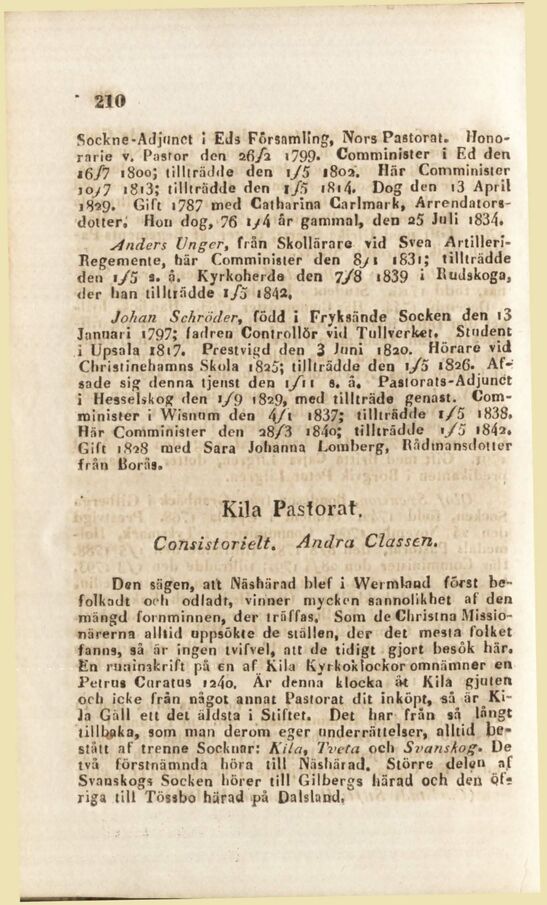 210
Sockne-Adjunct i Eds Församling, Nors Pastorat. Hono-
rarie v. Pastor den 26/2 1799. Comminister i Ed den
16/7 1800; tillträdde den 1/5 1802. Här Comminister
10/7 1813; tillträdde den 1/5 1814. Dog den 13 April
1829. Gift 1787 med Catharina Carlmark, Arrendators-
dotter; Hon dog, 76 1/4 år gammal, den 25 Juli 1834.
Anders Unger, från Skollärare vid Svea Artilleri-
Regemente, här Comminister den 8/1 1831; tillträdde
den 1/5 s. å. Kyrkoherde den 7/8 1839 i Rudskoga,
der han tillträdde 1/5 1842.
Johan Schröder, född i Fryksände Socken den 13
Januari 1797; fadren Controllör vid Tullverket. Student
i Upsala 1817. Prestvigd den 3 Juni 1820. Hörare vid
Christinehamns Skola 1825; tillträdde den 1/5 1826. Af-
sade sig denna tjenst den 1/11 s. å. Pastorats-Adjunct
i Hesselskog den 1/9 1829, med tillträde genast. Com-
minister i Wisnum den 4/1 1837; tillträdde 1/5 1838.
Här Comminister den 28/3 1840; tillträdde 1/5 1842.
Gift 1828 med Sara Johanna Lomberg, Rådmansdotter
från Borås.
Kila Pastorat.
Consistorielt. Andra Classen.
Den sägen, att Näshärad blef i Wermland först be-
folkadt och odladt, vinner mycken sannolikhet af den
mängd fornminnen, der träffas. Som de Christna Missio-
närerna alltid uppsökte de ställen, der det mesta folket
fanns, så är ingen tvifvel, att de tidigt gjort besök här.
En runinskrift på en af Kila Kyrkoklockor omnämner en
Petrus Curatus 1240. Är denna klocka åt Kila gjuten
och icke från något annat Pastorat dit inköpt, så är Ki-
la Gäll ett det äldsta i Stiftet. Det har från så långt
tillbaka, som man derom eger underrättelser, alltid be-
stått af trenne Socknar: Kila, Tveta och Svanskog. De
två förstnämnda höra till Näshärad. Större delen af
Svanskogs Socken hörer till Gilbergs härad och den öf-
riga till Tössbo härad på Dalsland.